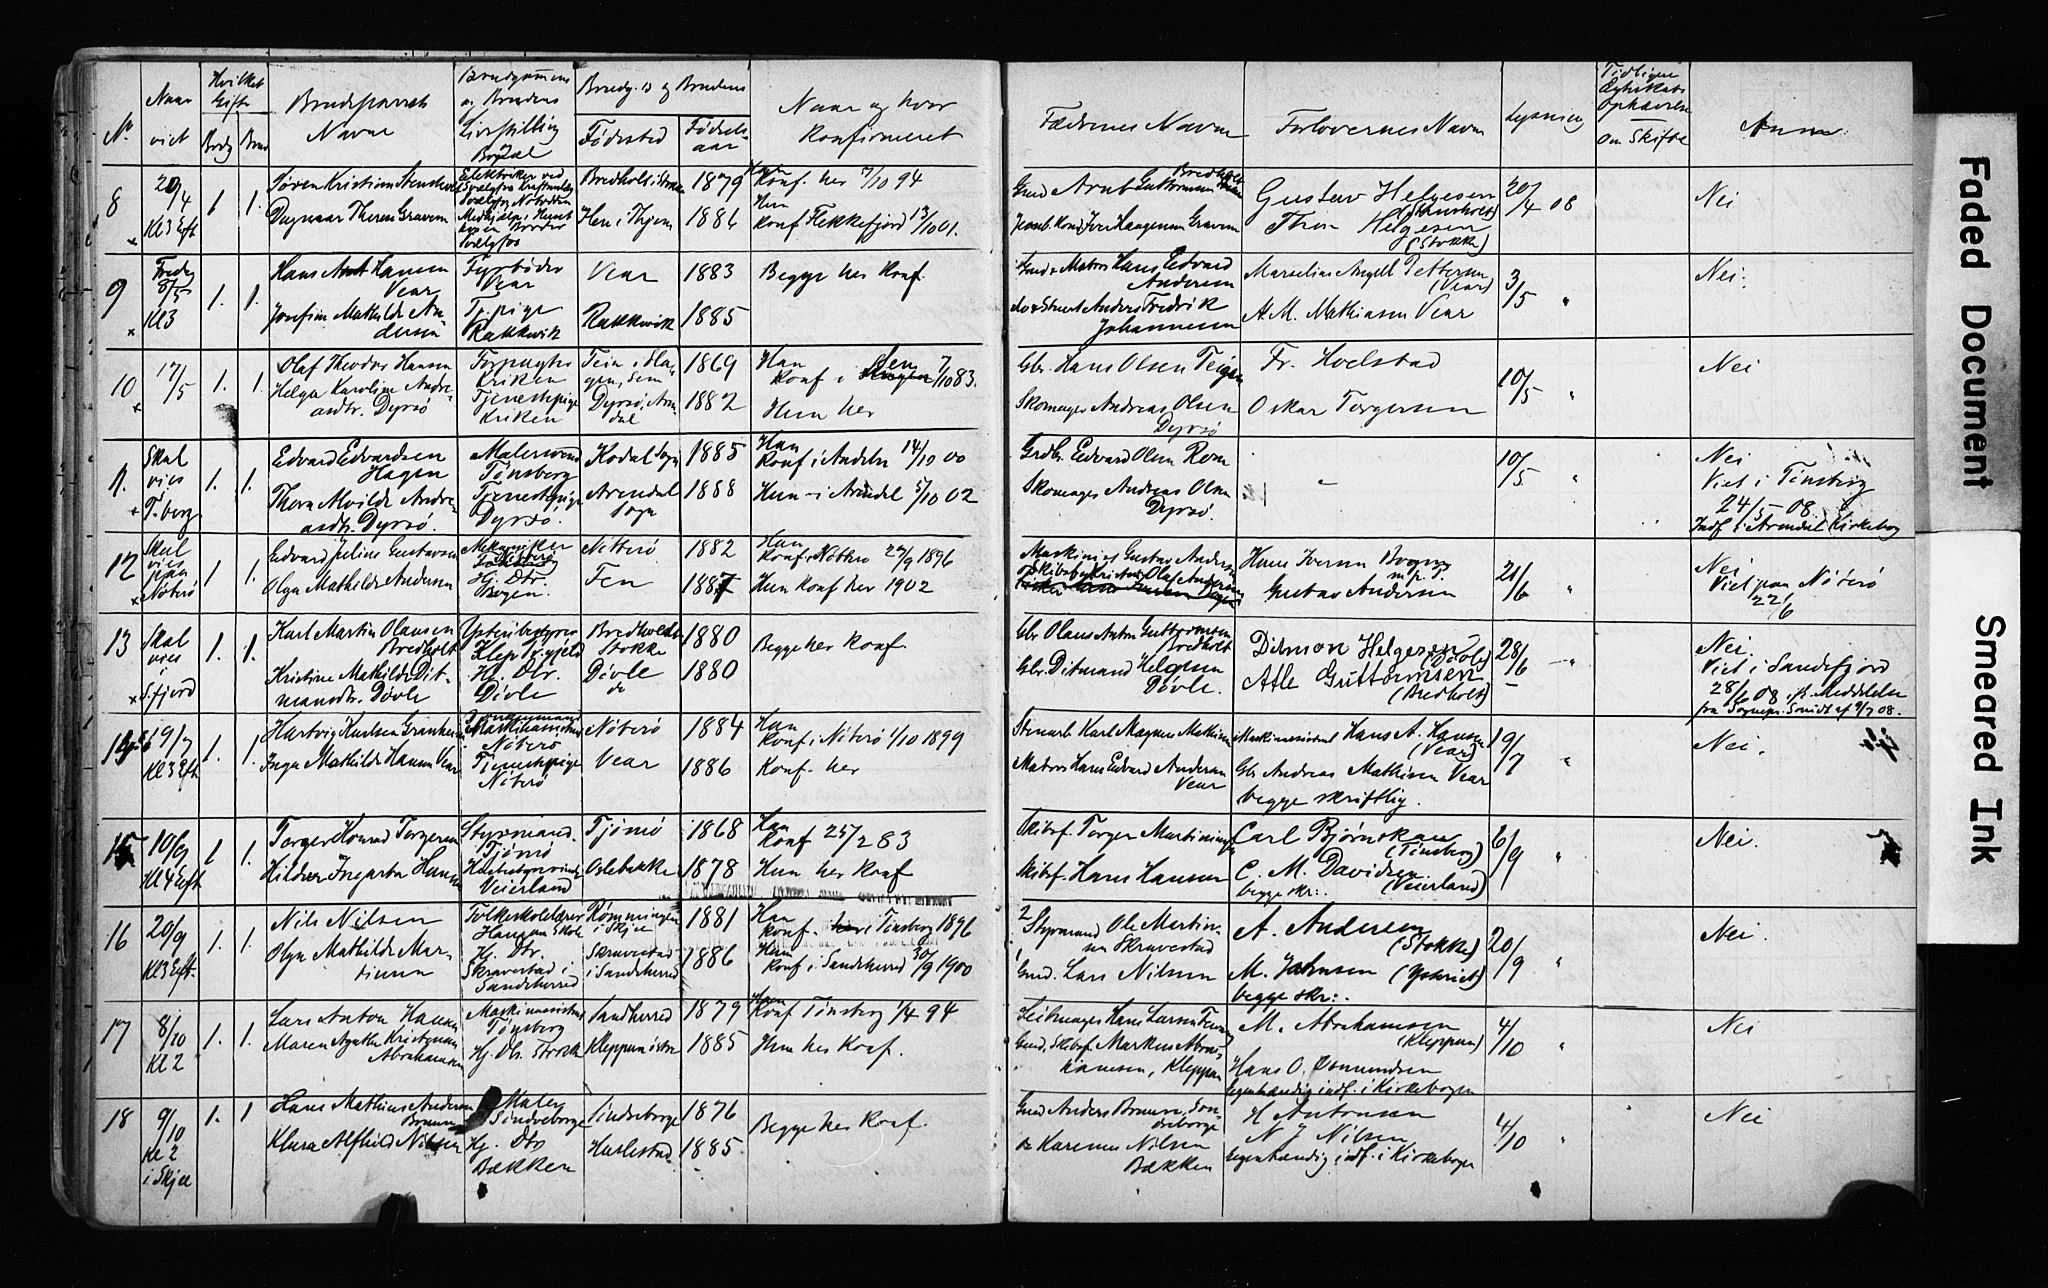 Nr
Naar viet
Hvilket Gifte
Brdg Brud
Brudeparrets Navne
Brudgommens og Brudens Livsstilling Bopæl
Brudg.s og Brudens
Fødested
Fødselsaar
Naar og hvor Konfirmeret
Fædrenes Navne
Forlovernes Navne
Lysning
Tidligere Ægteskabs Ophævelse
om Skifte
Anm:
8
20/4
Kl 3 Eft
1 1.
Søren Kristian
Dagmar There Gravem
Elektriker ved
Bredholt i Stokke
Hen i Thjem
1879
1886
Konf. her 7/10 94
Hun
Konf. Flekkefjord 13/10 01.
Gustav Helgesen
Thor Helgesen
(Stokke)
20/4 08
Nei
9
Fredag 8/5
Kl 3
1. 1.
Hans Arnt Hansen
Vear
Josefine Mathilde Andersen
Fyrbøder
Vear
Tj.pige
Rakkevik
Vear
Rakkevik
1883
1885
Begge her Konf.
Matros Hans Edvard
Andersen
Anders Fredrik
Johannesen
Marselius Angell Pettersen
(Vear)
A. M. Mathiasen Vear
3/5 "
Nei.
10
17/5
1. 1.
Olaf Theodor Hansen
Helga Karoline Andreasdtr. Dyrsø
Forpagter
Kriken
Tjenestepige
Kriken
Tein i Slagen, Sem
Dyrsø, Arndal
1869
1882
Han
Konf i Sem 7/10 83.
Hun her
Gbr. Hans Olsen Teigen
Skomager Andreas Olsen
Dyrsø
Fr. Hoelstad
Oskar Torgersen
10/5 "
Nei
11.
Skal vies T.berg
1. 1.
Edvard Edvardsen
Hagen
Thora Alvilde Andreasdtr. Dyrsø.
Malersvend
Tønsberg
Tjenestepige
Dyrsø.
Kodal Sogn
Arendal Sogn
1885
1888
Han
Konf i Andebu 14/10 00
Hun - i Arendal 5/10 02
Grdbr. Edvard Olsen Rom
Skomager Andreas Olsen
Dyrsø.
10/5 "
Nei
Viet i Tønsberg
24/5 - 08
Indf. i Arendal Kirkebog
12
Skal vies paa Nøtterø
1 1.
Edvard Julius Gustavsen
Olga Mathilde Andersen
Mekaniker
Hj. Dtr.
Bogen.
Nøtterø
Fen
1882
1887
Han
Konf i Nøtterø 27/9 1896
Hun Konf her 1902
Maskinist Gustav Andersen
Hans Iversen Bogen
m.p.P.
Gustav Andersen
21/6 "
Nei
Viet paa Nøterø
22/6
13
Skal vies i S.fjord
1. 1.
Karl Martin Olausen
Bredholt
Kristine Mathilde Ditmansdtr. Døvle
Ysteribestyrer
Klep
Hj. Dtr.
Døvle
Bredholt
Stokke
Døvle
do
1880
1880
Begge her Konf.
Gbr. Olaus Anton Guttormsen
Bredholt
Gbr. Ditmand Helgesen
Døvle.
Ditmon Helgesen
(Døvle)
Atle Guttormsen
(Bredholt)
28/6 - "
Nei.
Viet i Sandefjord
28/6 08 if. Meddelelse
fra Sognepr. Smidt af 9/7 08.
14
19/7
Kl 3 Eft.
1. 1.
Hartvig Karlsen
Inga Mathilde Hansen Vear
Nøterø
Tjenestepige
Nøterø
Nøterø
Vear
1884
1886
Han
Konf i Nøterø 1/10 1899
Konf. her
Stenarb. Karl Magnus Mathisen
Matros Hans Edvard Andersen
Vear
Maskinassistent Hans A. Hansen
(Vear)
Gbr. Andreas Mathisen Vear
begge skriftlig.
19/7 "
Nei.
15
10/9
Kl 4 Eft.
1 1.
Torger Konrad Torgersen
Hildur Ingarta Hansen
Styrmand.
Tjømø
Veierland
Tjømø
Oslebakke
1868
1878
Han
Konf 25/2 83
Hun her Konf
Skibsf. Torger Martinsen
Skibsf. Hans Hansen
Carl Bjørnskau
(Tønsberg)
C. M. Davidsen
(Veierland)
begge skr:.
6/9 "
Nei.
16
20/9
Kl 3 Eft.
1. 1.
Nils Nilsen
Olga Mathilde Martinsen
Folkeskolelærer
Skole
Hj. Dtr.
Skravestad i
Sandeherred
Rømmingen
i Skjee
Skravestad
i Sandeherred
1881
1886
Han
Konf. i Tønsberg 1896
Hun
Konf i Sandeherred 30/9 1900
2 Styrmand Ole Martinsen Skravestad
1 Gmd. Lars Nilsen
A. Andersen
(Stokke)
M. Johnsen (Ysteriet)
begge skr:.
20/9 "
Nei.
17
8/10
Kl 2
1. 1.
Lars Anton Hansen
Maren Agathe Kristiansen
Abrahamsen
Maskinassistent
Tønsberg
Hj. Dtr. Stokke
Sandherred
Kleppan østre
1879
1885
Han
Konf Tønsberg 1/4 94
Hun her Konf.
Gmd. Skibsf. Markus Abrahamsen, Kleppan
M. Abrahamsen
(Kleppan)
Hans O. Osmundsen
Egenhændig indf. i Kirkebogen
4/10 "
Nei
18
9/10
Kl 2
i Skjee
1. 1
Hans Mathius Andersen
Brunn
Klara Alfhild Nilsen
Maler
Søndreborge
Hj. Dtr
Bækken
Sindreborge
Haslestad
1876
1885
Begge her Konf.
Gmd Anders Brunn, Søndreborge
Karenus Nilsen
Bækken
H Antonsen
N J Nilsen
Egenhændig indf. i Kirkebogen
4/10 "
Nei
Faded Document
Smeared Ink